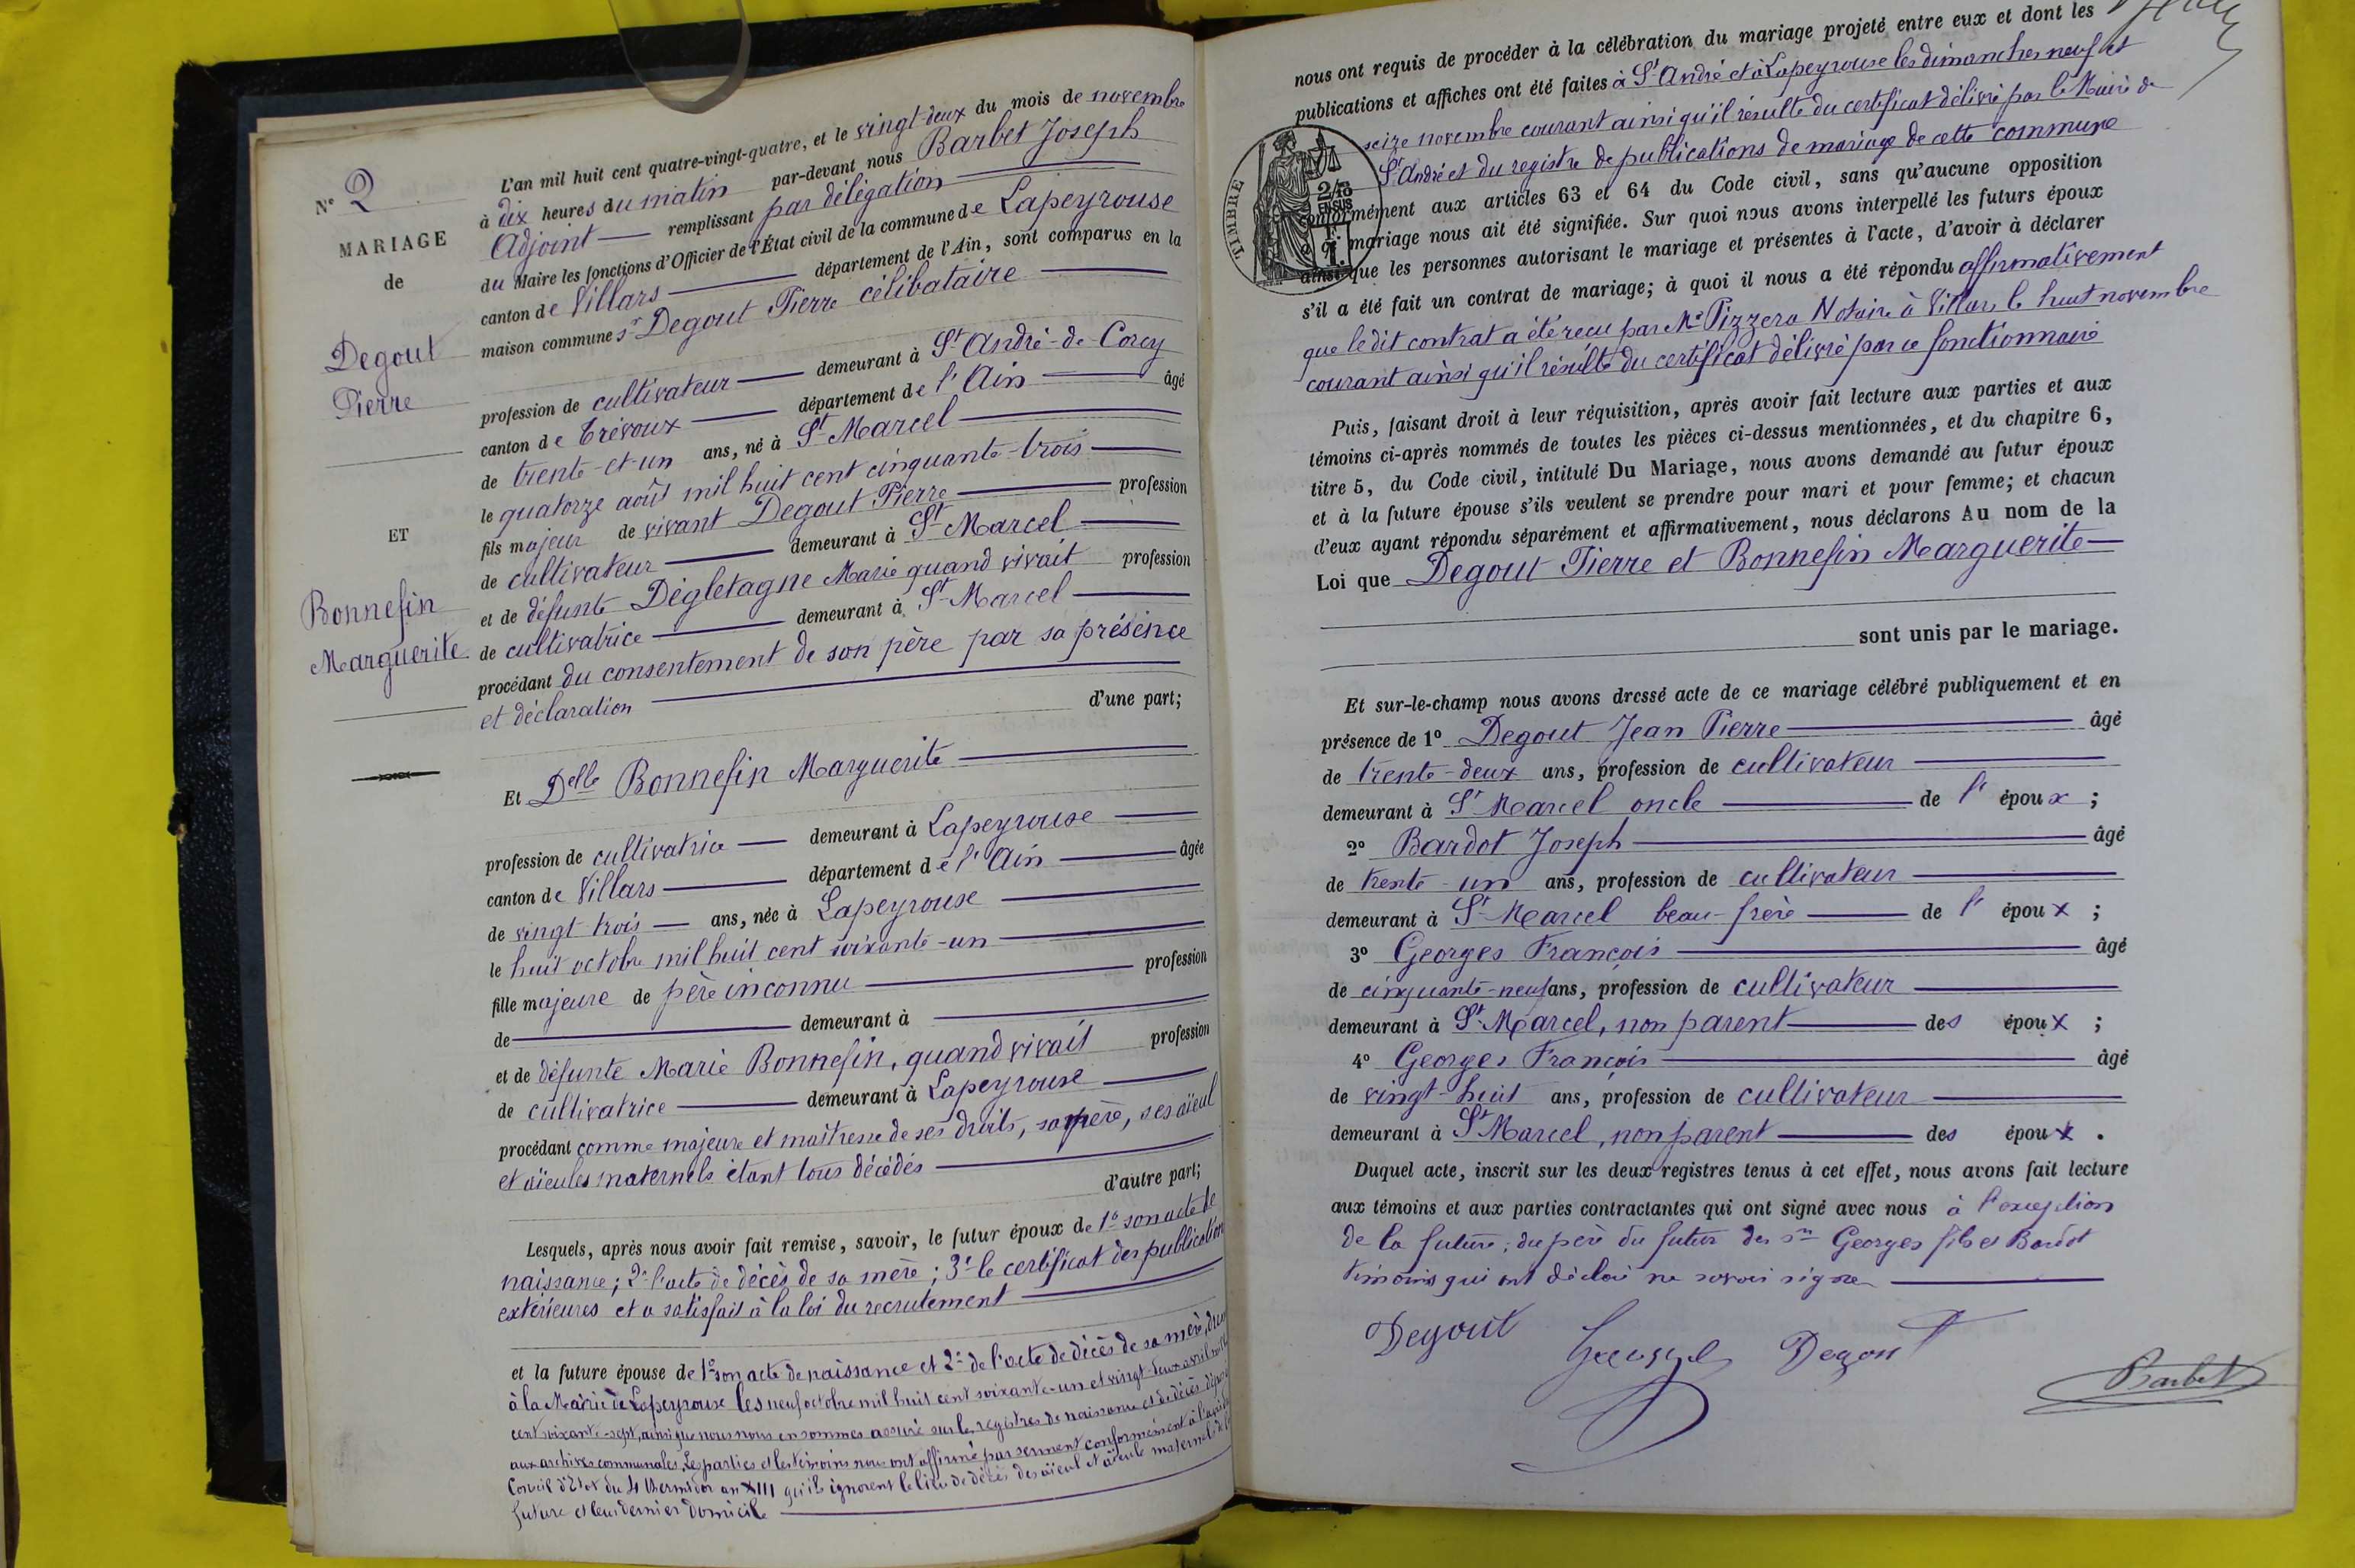 N° 2
MARIAGE
de
Degout
Pierre
ET
Bonnefin
Marguerite
L'an mil huit cent quatre-vingt-quatre, et le vingt-deux du mois de novembre
à dix heures du matin par-devant nous Barbet Joseph
Adjoint remplissant par délégation
du Maire les fonctions d'Officier de l'État civil de la commune de Lapeyrouse
canton de Villars département de l'Ain, sont comparus en la
maison commune sr Degout Pierre célibataire
profession de cultivateur demeurant à St André-de-Corcy
canton de Trévoux département de l'Ain âgé
de trente-et-un ans, né à St Marcel
le quatorze août mil huit cent cinquante-trois
fils majeur de vivant Degout Pierre profession
de cultivateur demeurant à St Marcel
et de défunte Dégletagne Marie quand vivait profession
de cultivatrice demeurant à St Marcel
procédant du consentement de son père par sa présence
et déclaration
d'une part;
Et Delle Bonnefin Marguerite
profession de cultivatrice demeurant à Lapeyrouse
canton de Villars département de l'Ain âgée
de vingt trois ans, née à Lapeyrouse
le huit octobre mil huit cent soixante-un
fille majeure de père inconnu profession
de demeurant à
et de défunte Marie Bonnefin, quand vivait profession
de cultivatrice demeurant à Lapeyrouse
procédant comme majeure et maîtresse de ses droits, sa mère, ses aïeul
et aïeules maternels étant tous décédés
d'autre part;
Lesquels, après nous avoir fait remise, savoir, le futur époux de 1° son acte de
naissance; 2° l'acte de décès de sa mère; 3° le certificat des publications
extérieures et a satisfait à la loi du recrutement
et la future épouse de 1° son acte de naissance et 2° de l'acte de décès de sa mère,
à la Mairie de Lapeyrouse les neuf octobre mil huit cent soixante-un et vingt-deux avril
cent soixante-sept, ainsi que nous nous en sommes assuré sur les registres de naissance et de décès
aux archives communales. Les parties et les témoins nous ont affirmé par serment conformément à l'avis du
Conseil d'Etat du 4 thermidor an XIII qu'ils ignorent le lieu de décès des aïeul et aïeule maternels de la
future et leur dernier domicile
nous ont requis de procéder à la célébration du mariage projeté entre eux et dont les
publications et affiches ont été faites à St André et à Lapeyrouse les dimanches neuf et
seize novembre courant ainsi qu'il résulte du certificat délivré par le Maire de
St André et du registre de publications de mariage de cette commune
TIMBRE
conformément aux articles 63 et 64 du Code civil, sans qu'aucune opposition
mariage nous ait été signifiée. Sur quoi nous avons interpellé les futurs époux
ainsi que les personnes autorisant le mariage et présentes à l'acte, d'avoir à déclarer
s'il a été fait un contrat de mariage; à quoi il nous a été répondu affirmativement
que le dit contrat a été reçu par Me Pizzera Notaire à Villars le huit novembre
courant ainsi qu'il résulte du certificat délivré par ce fonctionnaire
Puis, faisant droit à leur réquisition, après avoir fait lecture aux parties et aux
témoins ci-après nommés de toutes les pièces ci-dessus mentionnées, et du chapitre 6,
titre 5, du Code civil, intitulé Du Mariage, nous avons demandé au futur époux
et à la future épouse s'ils veulent se prendre pour mari et pour femme; et chacun
d'eux ayant répondu séparément et affirmativement, nous déclarons Au nom de la
Loi que Degout Pierre et Bonnefin Marguerite
sont unis par le mariage.
Et sur-le-champ nous avons dressé acte de ce mariage célébré publiquement et en
présence de 1° Degout Jean Pierre âgé
de trente-deux ans, profession de cultivateur
demeurant à St Marcel oncle de l' époux ;
2° Bardot Joseph âgé
de trente-un ans, profession de cultivateur
demeurant à St Marcel beau-frère de l' époux ;
3° Georges François âgé
de cinquante-neuf ans, profession de cultivateur
demeurant à St Marcel, non parent des époux ;
4° Georges François âgé
de vingt-huit ans, profession de cultivateur
demeurant à St Marcel, non parent des époux .
Duquel acte, inscrit sur les deux registres tenus à cet effet, nous avons fait lecture
aux témoins et aux parties contractantes qui ont signé avec nous à l'exception
de la future, du père du futur des srs Georges fils et Bardot
témoins qui ont déclaré ne savoir signer
Degout Georges Degout
Barbet